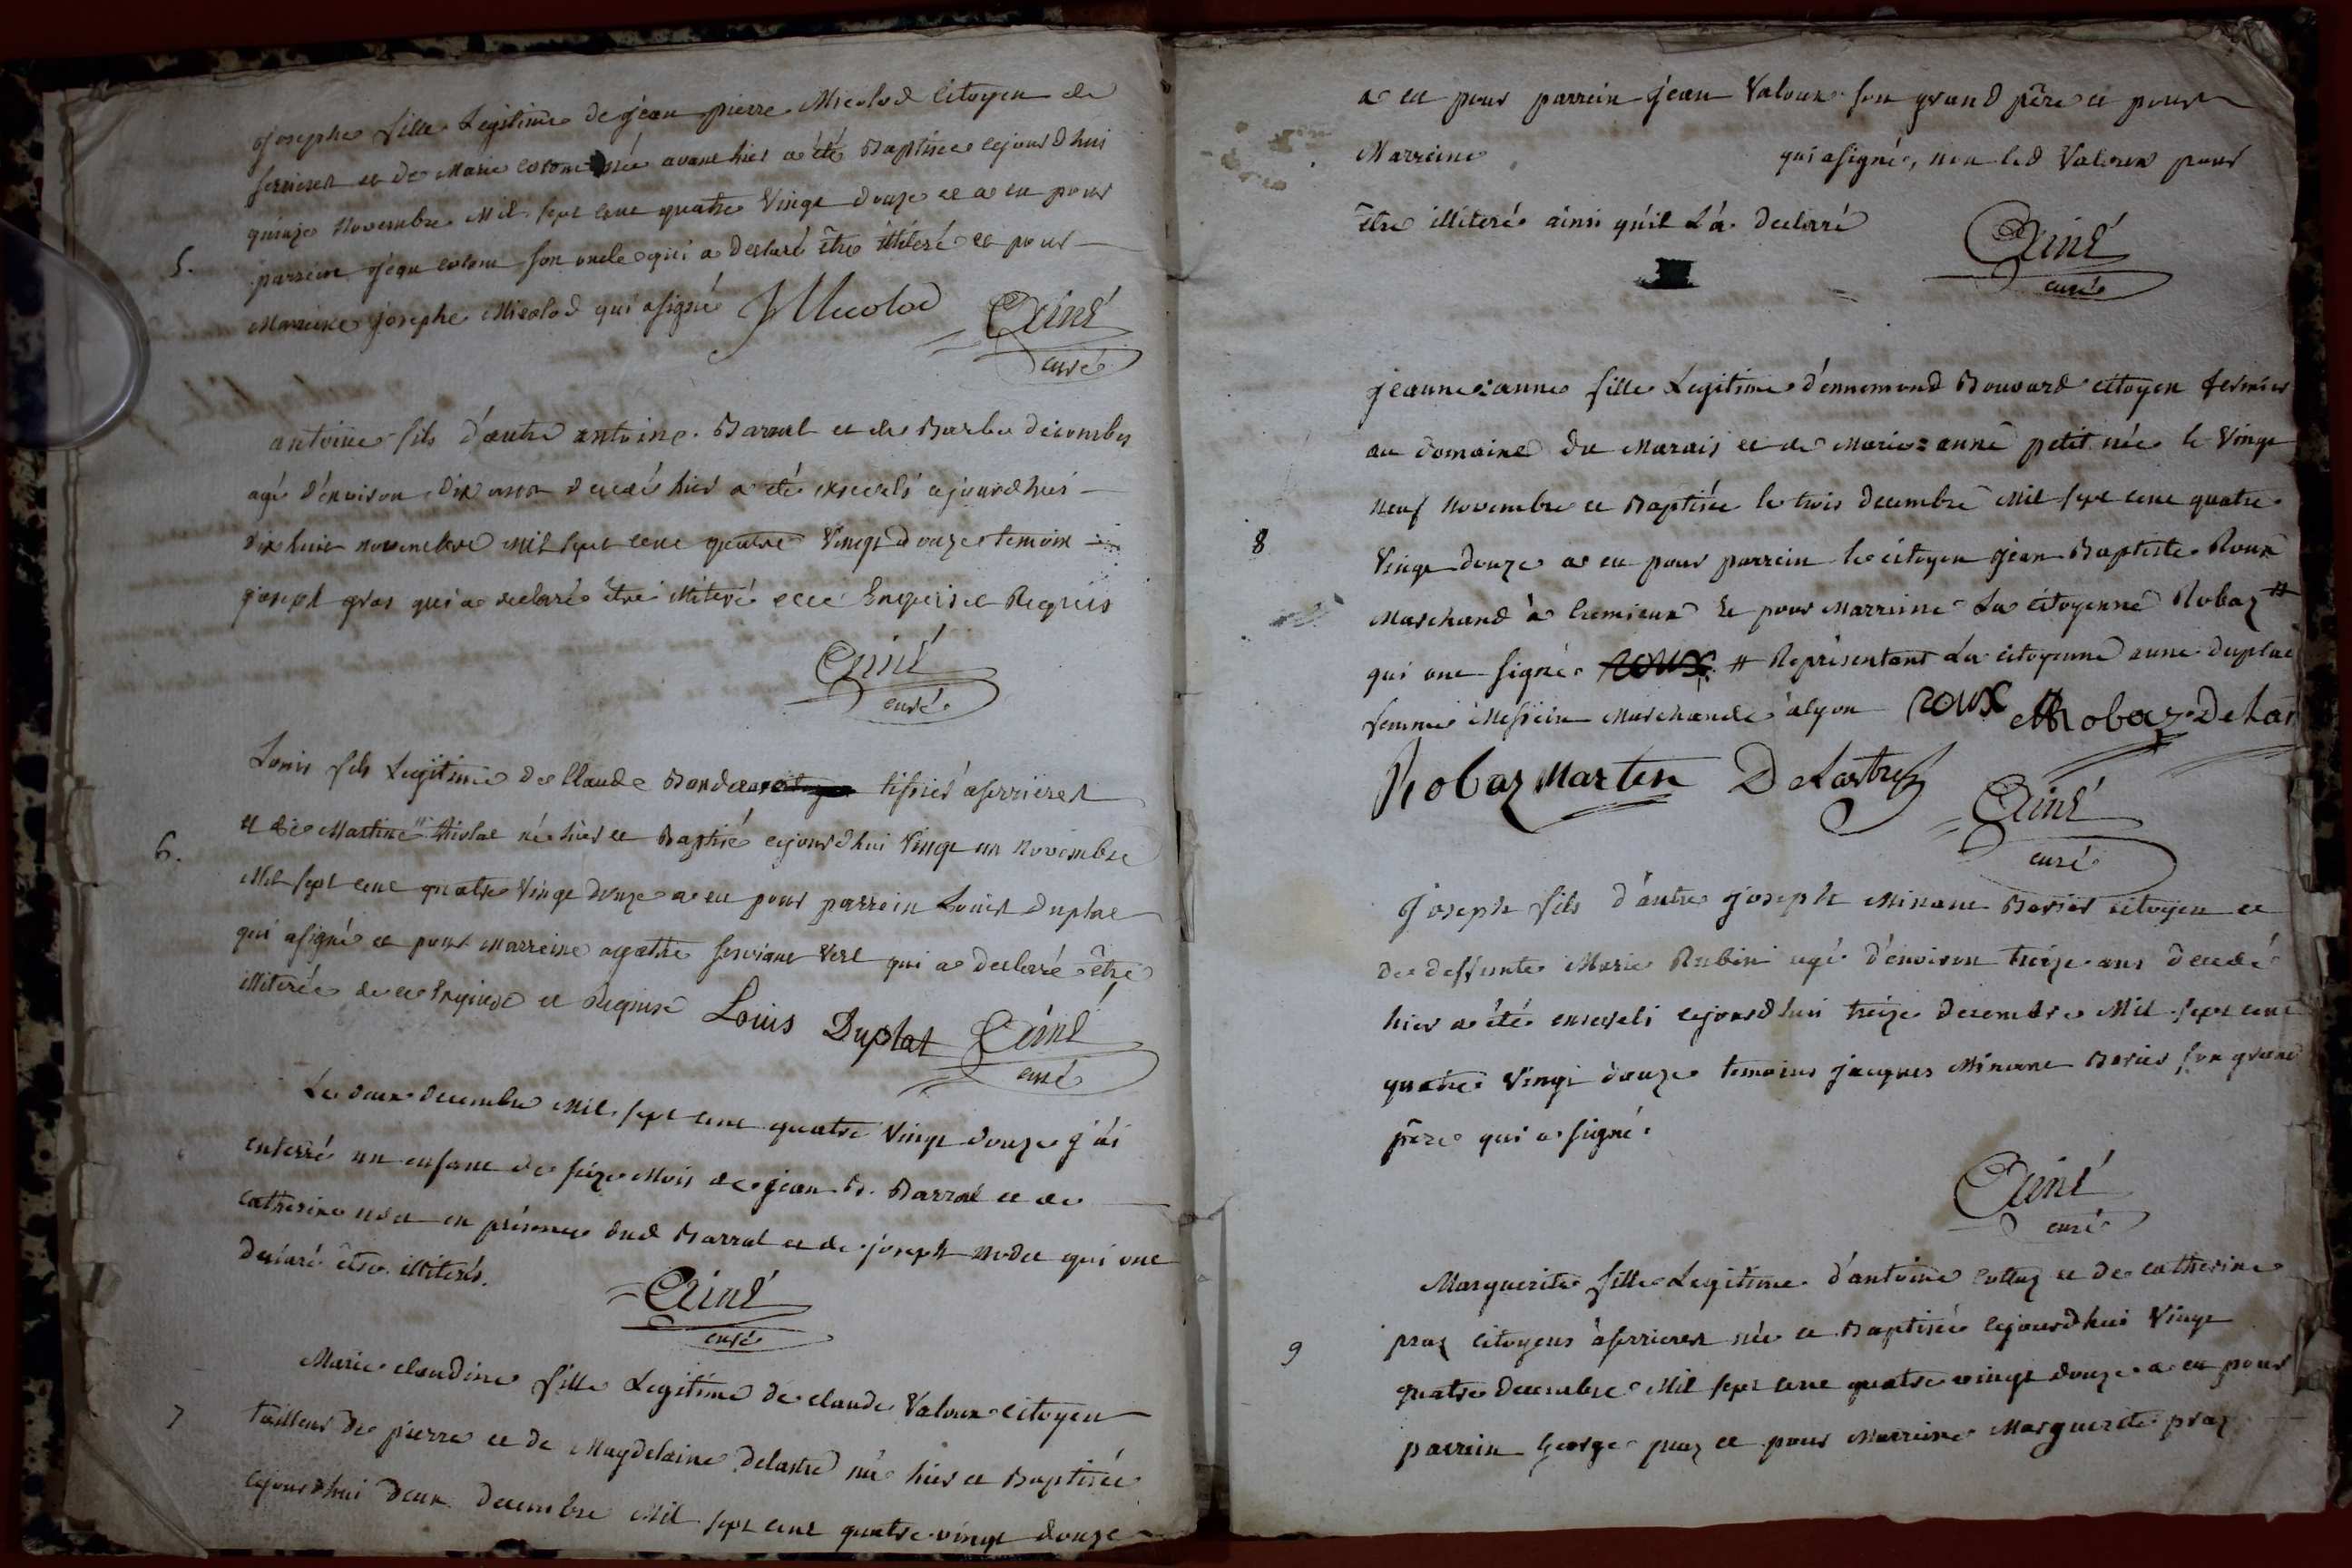 josephe fille Legitime de jean pierre Micolod citoyen de
serrieres et de Marie colom née avant hier a été Baptisée cejourdhui
quinze novembre Mil sept cent quatre Vingt douze et a eu pour
5.
parrein jean colom son oncle qui a declaré être illiteré et pour
Marreine josephe Micolod qui asigné JMicolod
curé
antoine fils d'autre antoine Barral et de Barbe decombes
agé d'environ dix ans decedé hier a été enseveli cejourdhui
dix huit novembre mil sept cent quatre Vingt douze temoin
joseph gras qui a declaré être illiteré de ce Enquis et Requis
curé
Louis fils Legitime de Claude tissier aserrieres
et de Martine né hier et Baptisé cejourdhui Vingt un novembre
6.
Mil sept cent quatre Vingt douze a eu pour parrein Louis duplat
qui asigné et pour Marreine agathe qui a declaré être
illiterée de ce Enquise et Requise Louis Duplat
curé
Le deux decembre Mil sept cent quatre Vingt douze j'ai
enterré un enfant de seize Mois de jean B. Barral et de
catherine en présence dud Barral et de joseph qui ont
declaré être illiterés.
curé
Marie claudine fille Legitime de claude Valoux citoyen
7
tailleur de pierre et de Magdelaine delastre née hier et Baptisée
cejourdhui deux decembre Mil sept cent quatre vingt douze
a eu pour parrein jean Valoux son grand père et pour
Marreine qui asigné, non led Valoux pour
être illiteré ainsi qu'il L'a declaré
curé
jeanne=anne fille Legitime d'ennemond Bouvard citoyen fermier
au domaine du Marais et de Marie=anne petit née le Vingt
neuf novembre et Baptisée le trois decembre Mil sept cent quatre
8
Vingt douze a eu pour parrein le citoyen jean Baptiste Roux
Marchand à Cremieux et pour Marreine La citoyenne Robaz #
qui ont signé roux # Représentant La citoyenne anne duplat
femme Messein Marchande àlyon roux Robaz Delas
Robaz Marten Delastre
curé
joseph fils d'autre joseph citoyen et
de deffunte Marie Rubin agé d'environ treize ans decedé
hier a été enseveli cejourdhui treize decembre Mil sept cent
quatre Vingt douze temoins jacques son grand
père qui a signé.
curé
Marguerite fille Legitime d'antoine et de catherine
praz citoyens àserrieres née et Baptisée cejourdhui Vingt
9
quatre decembre Mil sept cent quatre vingt douze a eu pour
parrein George praz et pour Marreine Marguerite praz